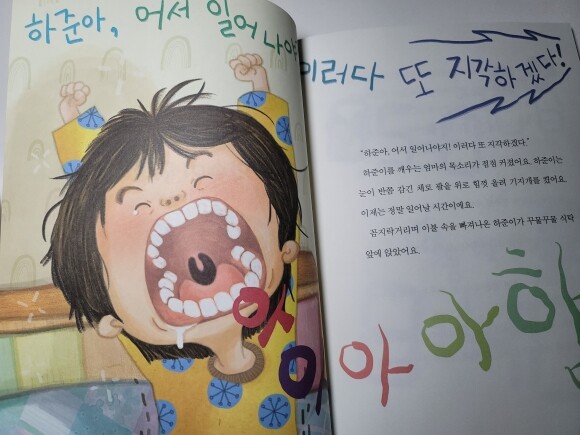 하준아, 어서 일어나야 이러다 또 지각하겠다!
"하준아, 어서 일어나야지! 이러다 또 지각하겠다."
하준이를 깨우는 엄마의 목소리가 점점 커졌어요. 하준이는
눈이 반쯤 감긴 채로 팔을 위로 힘껏 올려 기지개를 켰어요.
이제는 정말 일어날 시간이에요.
꼼지락거리며 이불 속을 빠져나온 하준이가 꾸물꾸물 식탁
앞에 앉았어요.
아 아 하